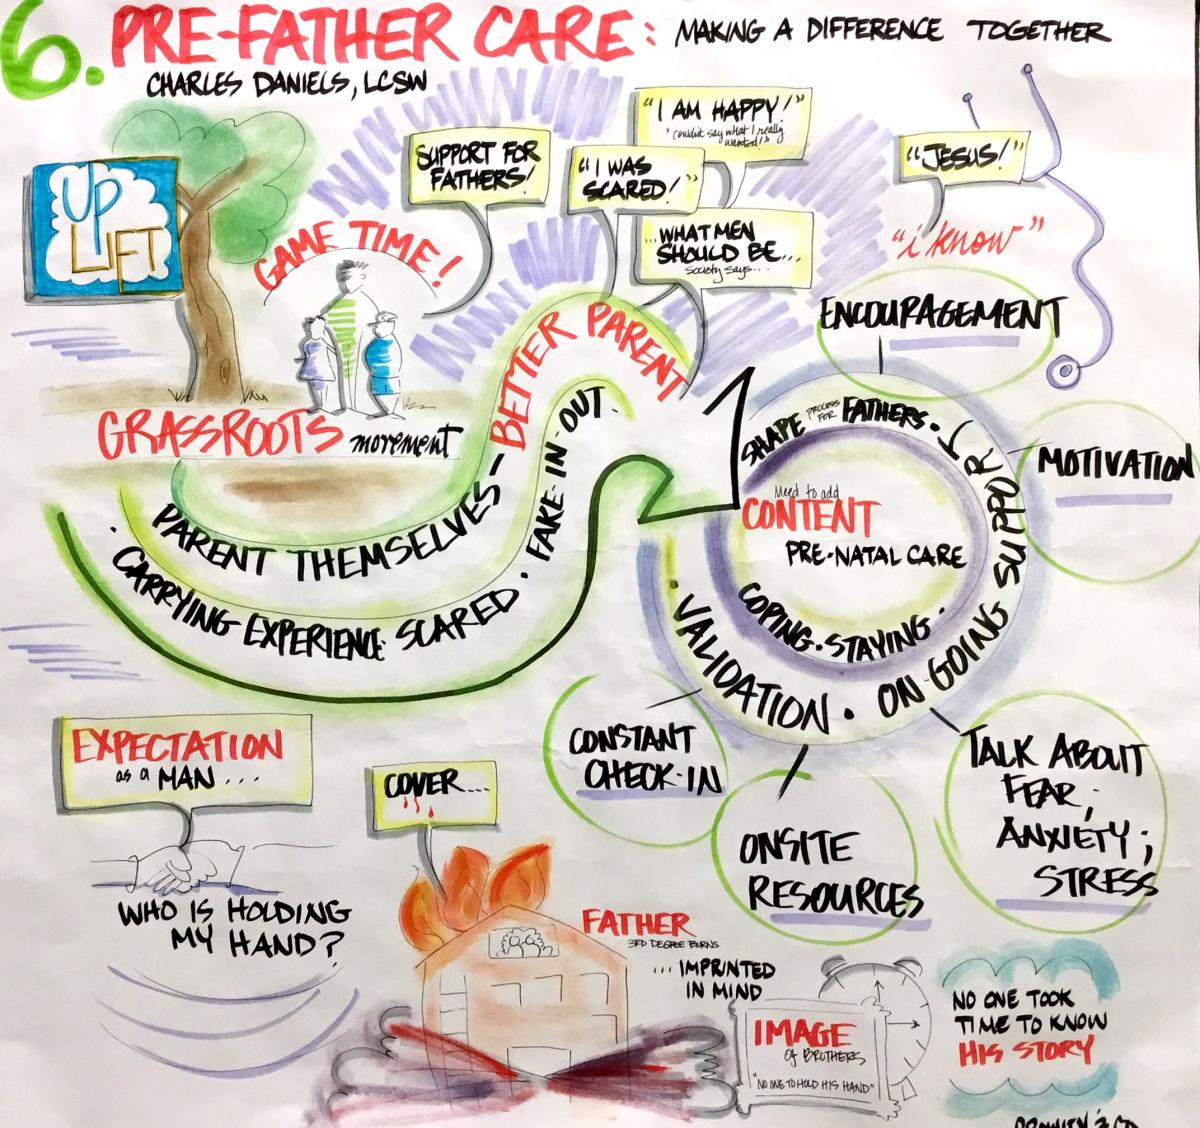 6. PRE-FATHER CARE: MAKING A DIFFERENCE TOGETHER
CHARLES DANIELS, LCSW
UP
LIFT
GAME TIME!
SUPPORT FOR
FATHERS!
"I AM HAPPY!"
"couldn't say what I really
wanted!"
"I WAS
SCARED!"
...WHAT MEN
SHOULD BE...
society says...
"JESUS!"
"i know"
GRASSROOTS movement
PARENT THEMSELVES - BETTER PARENT
· CARRYING EXPERIENCE SCARED · FAKE-IN-OUT.
ENCOURAGEMENT
MOTIVATION
SHAPE PROCESS FOR FATHERS.
Need to add
CONTENT
PRE-NATAL CARE
COPING·STAYING.
· VALIDATION · ON-GOING SUPPORT
CONSTANT
CHECK-IN
ONSITE
RESOURCES
TALK ABOUT
FEAR;
ANXIETY;
STRESS
EXPECTATION
as a MAN...
WHO IS HOLDING
MY HAND?
COVER....
FATHER
3RD DEGREE BURNS
...IMPRINTED
IN MIND
IMAGE
of BROTHERS
"NO ONE TO HOLD HIS HAND"
NO ONE TOOK
TIME TO KNOW
HIS STORY